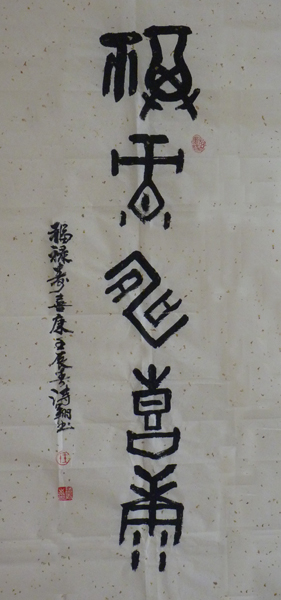 福禄寿喜康
福禄寿喜康壬辰吴诗翔书